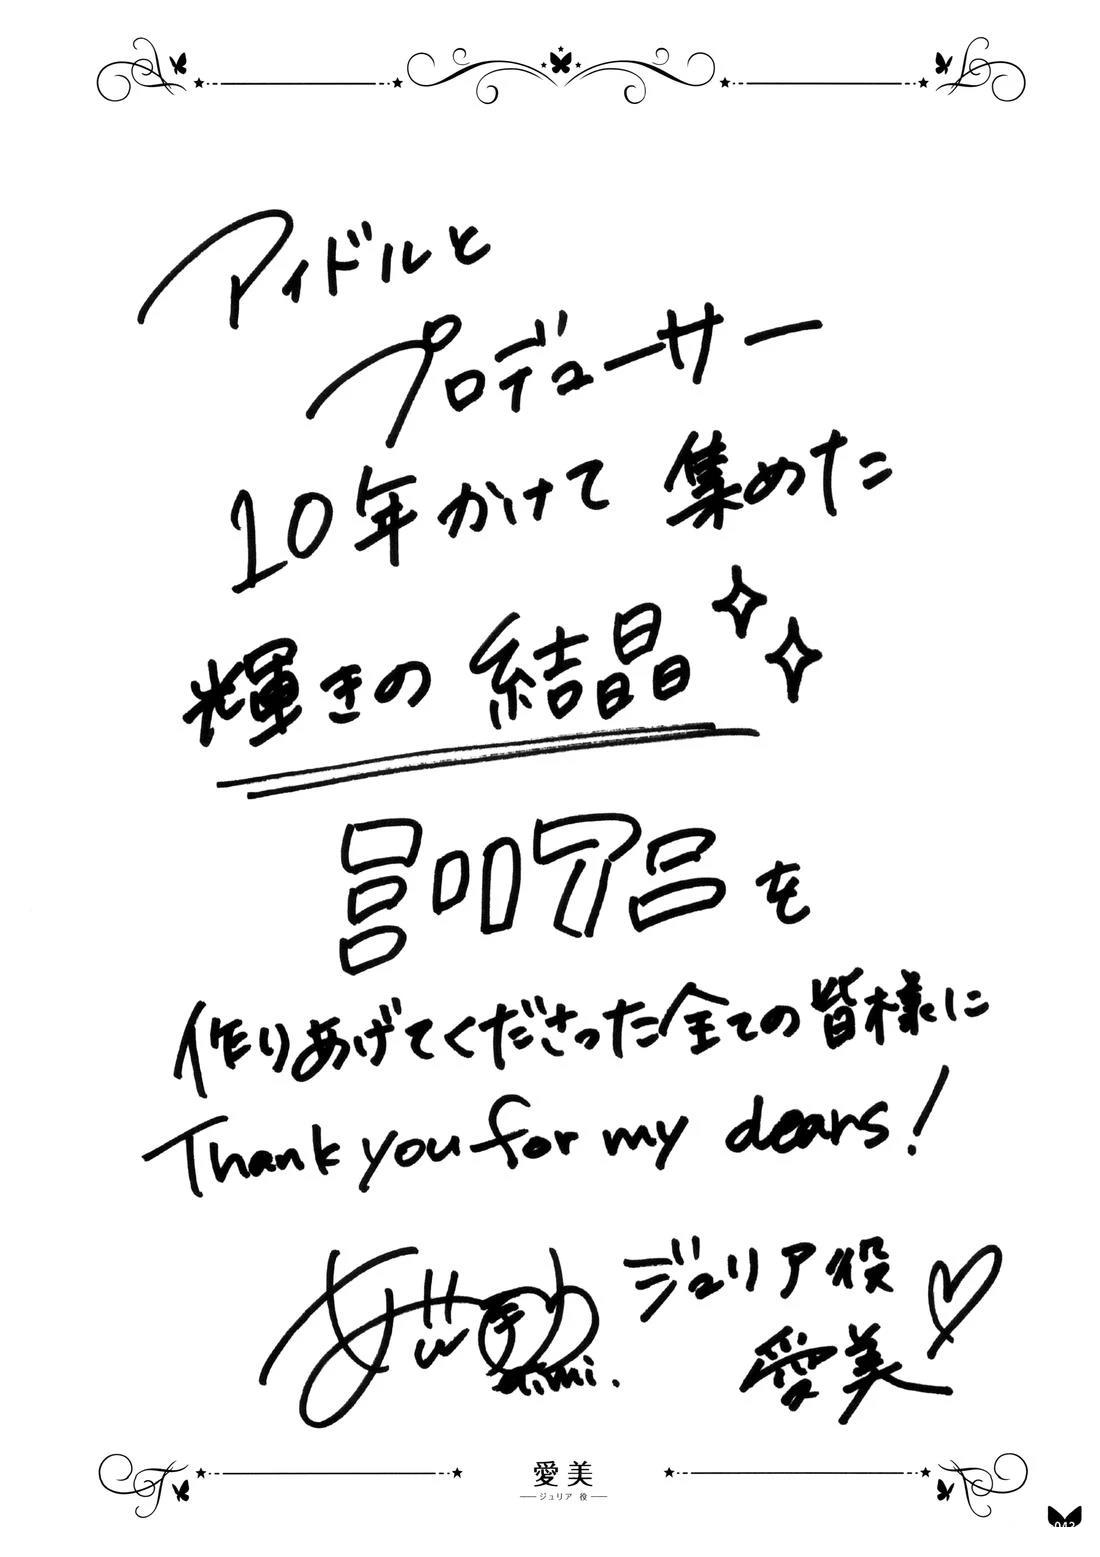 アイドルと
プロデューサー
10年かけて 集めた
輝きの結晶
ミリアニを
作りあげてくださった全ての皆様に
Thank you for my dears!
ジュリア役
愛美
aimi.
愛美
ジュリア 役